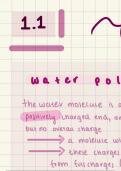 1.1
water pol
the water molecule is a
positively charged end, an
but no overall charge.
a molecule w
these charges
from full charges (